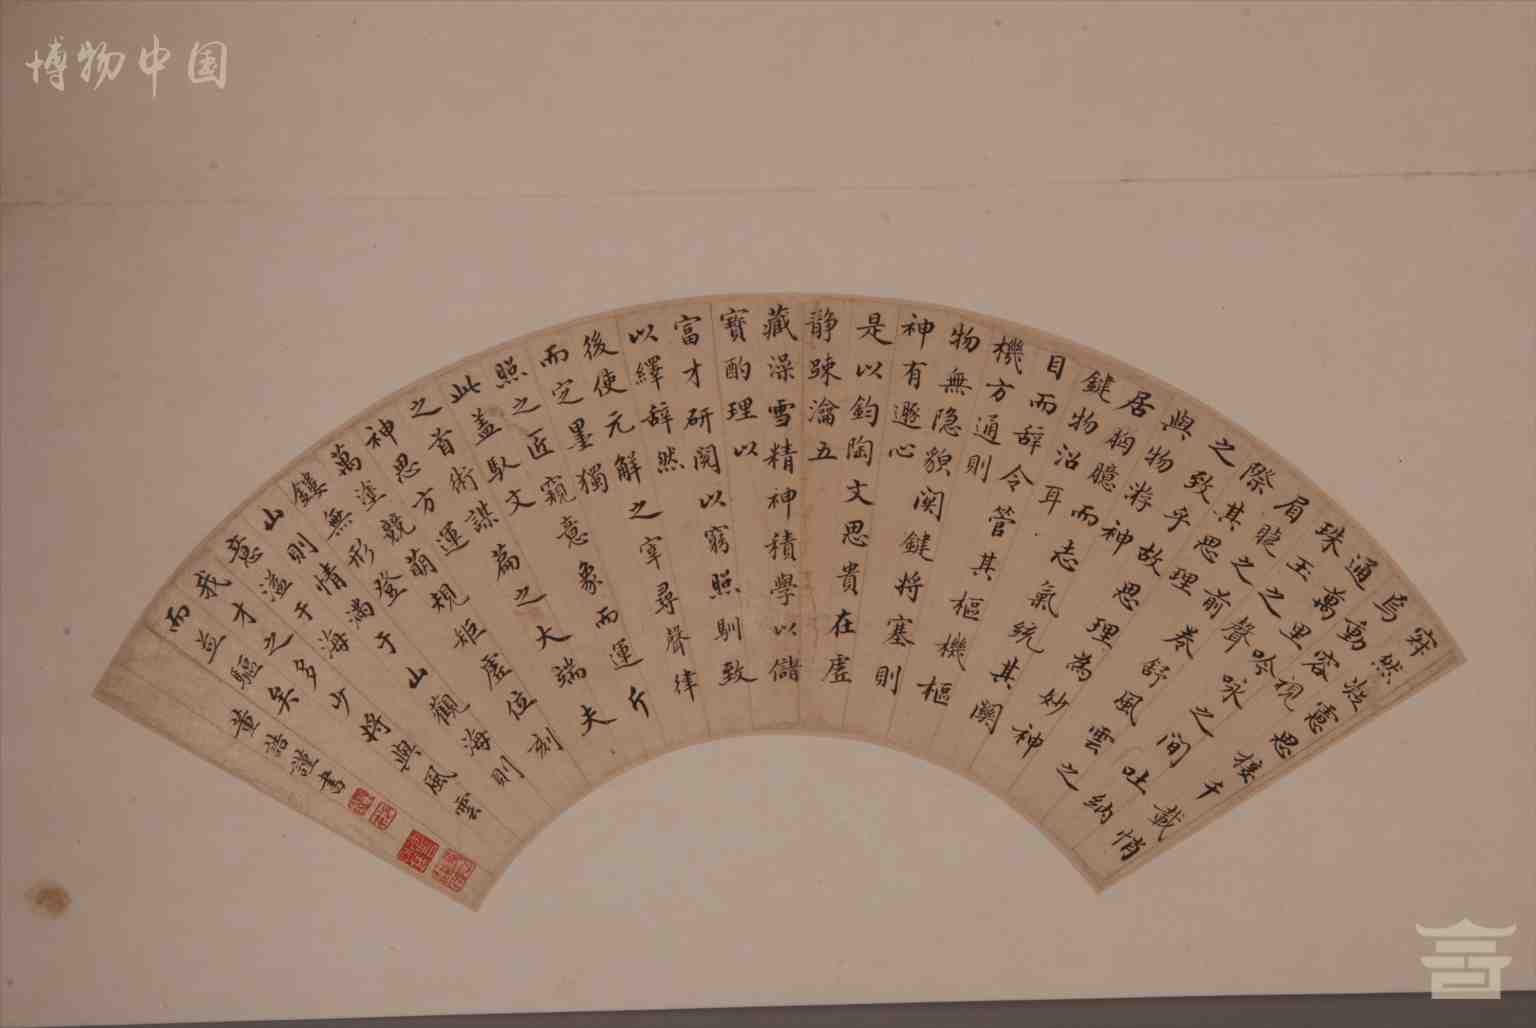 博物中国
宷然凝慮思接千載悄
焉動容視
通萬里吟咏之間吐納
珠玉之聲
眉睫之前卷舒風雲之
際其思理
之致乎故思理為妙神
與物游神
居胸臆而志氣統其闗
鍵物沿耳
目而辞令管其樞機樞
機方通則
物無隐貌関鍵将塞則
神有遯心
是以鈞陶文思貴在虛
静疎瀹五
藏澡雪精神積學以儲
寶酌理以
富才研閲以窮照馴致
以繹辞然
後使元解之宰尋聲律
而定墨獨
照之匠窺意象而運斤
此盖馭文
之首術謀篇之大端夫
神思方運
萬塗競萌規矩虛位刻
鏤無形登
山則情滿于山觀海則
意溢于海
我才之多少将與風雲
而並驅矣
董誥謹書